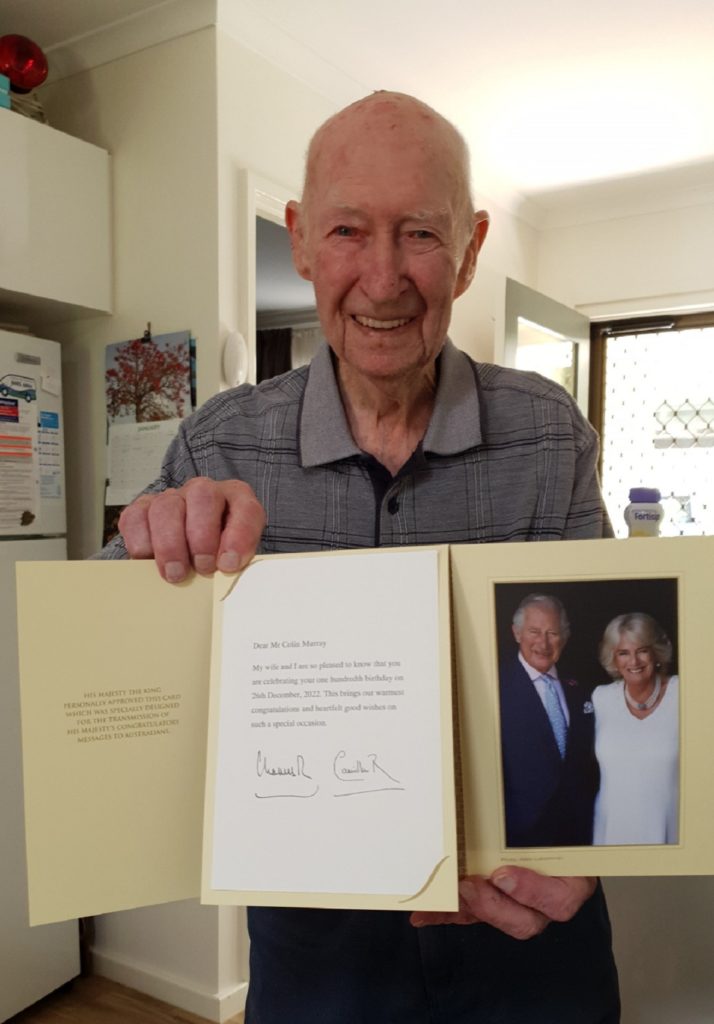 JANUARY
Fortisip
HIS MAJESTY THE KING
PERSONALLY APPROVED THIS CARD
WHICH WAS SPECIALLY DESIGNED
FOR THE TRANSMISSION OF
HIS MAJESTY'S CONGRATULATORY
MESSAGES TO AUSTRALIANS.
Dear Mr Colin Murray
My wife and I are so pleased to know that you
are celebrating your one hundredth birthday on
26th December, 2022. This brings our warmest
congratulations and heartfelt good wishes on
such a special occasion.
Charles R Camilla R